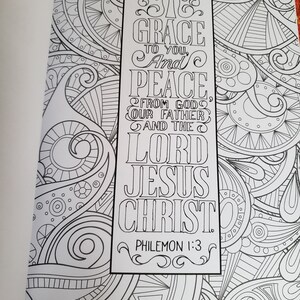 GRACE
TO YOU
And
PEACE,
FROM GOD
OUR FATHER
AND THE
LORD
JESUS
CHRIST.
PHILEMON 1:3